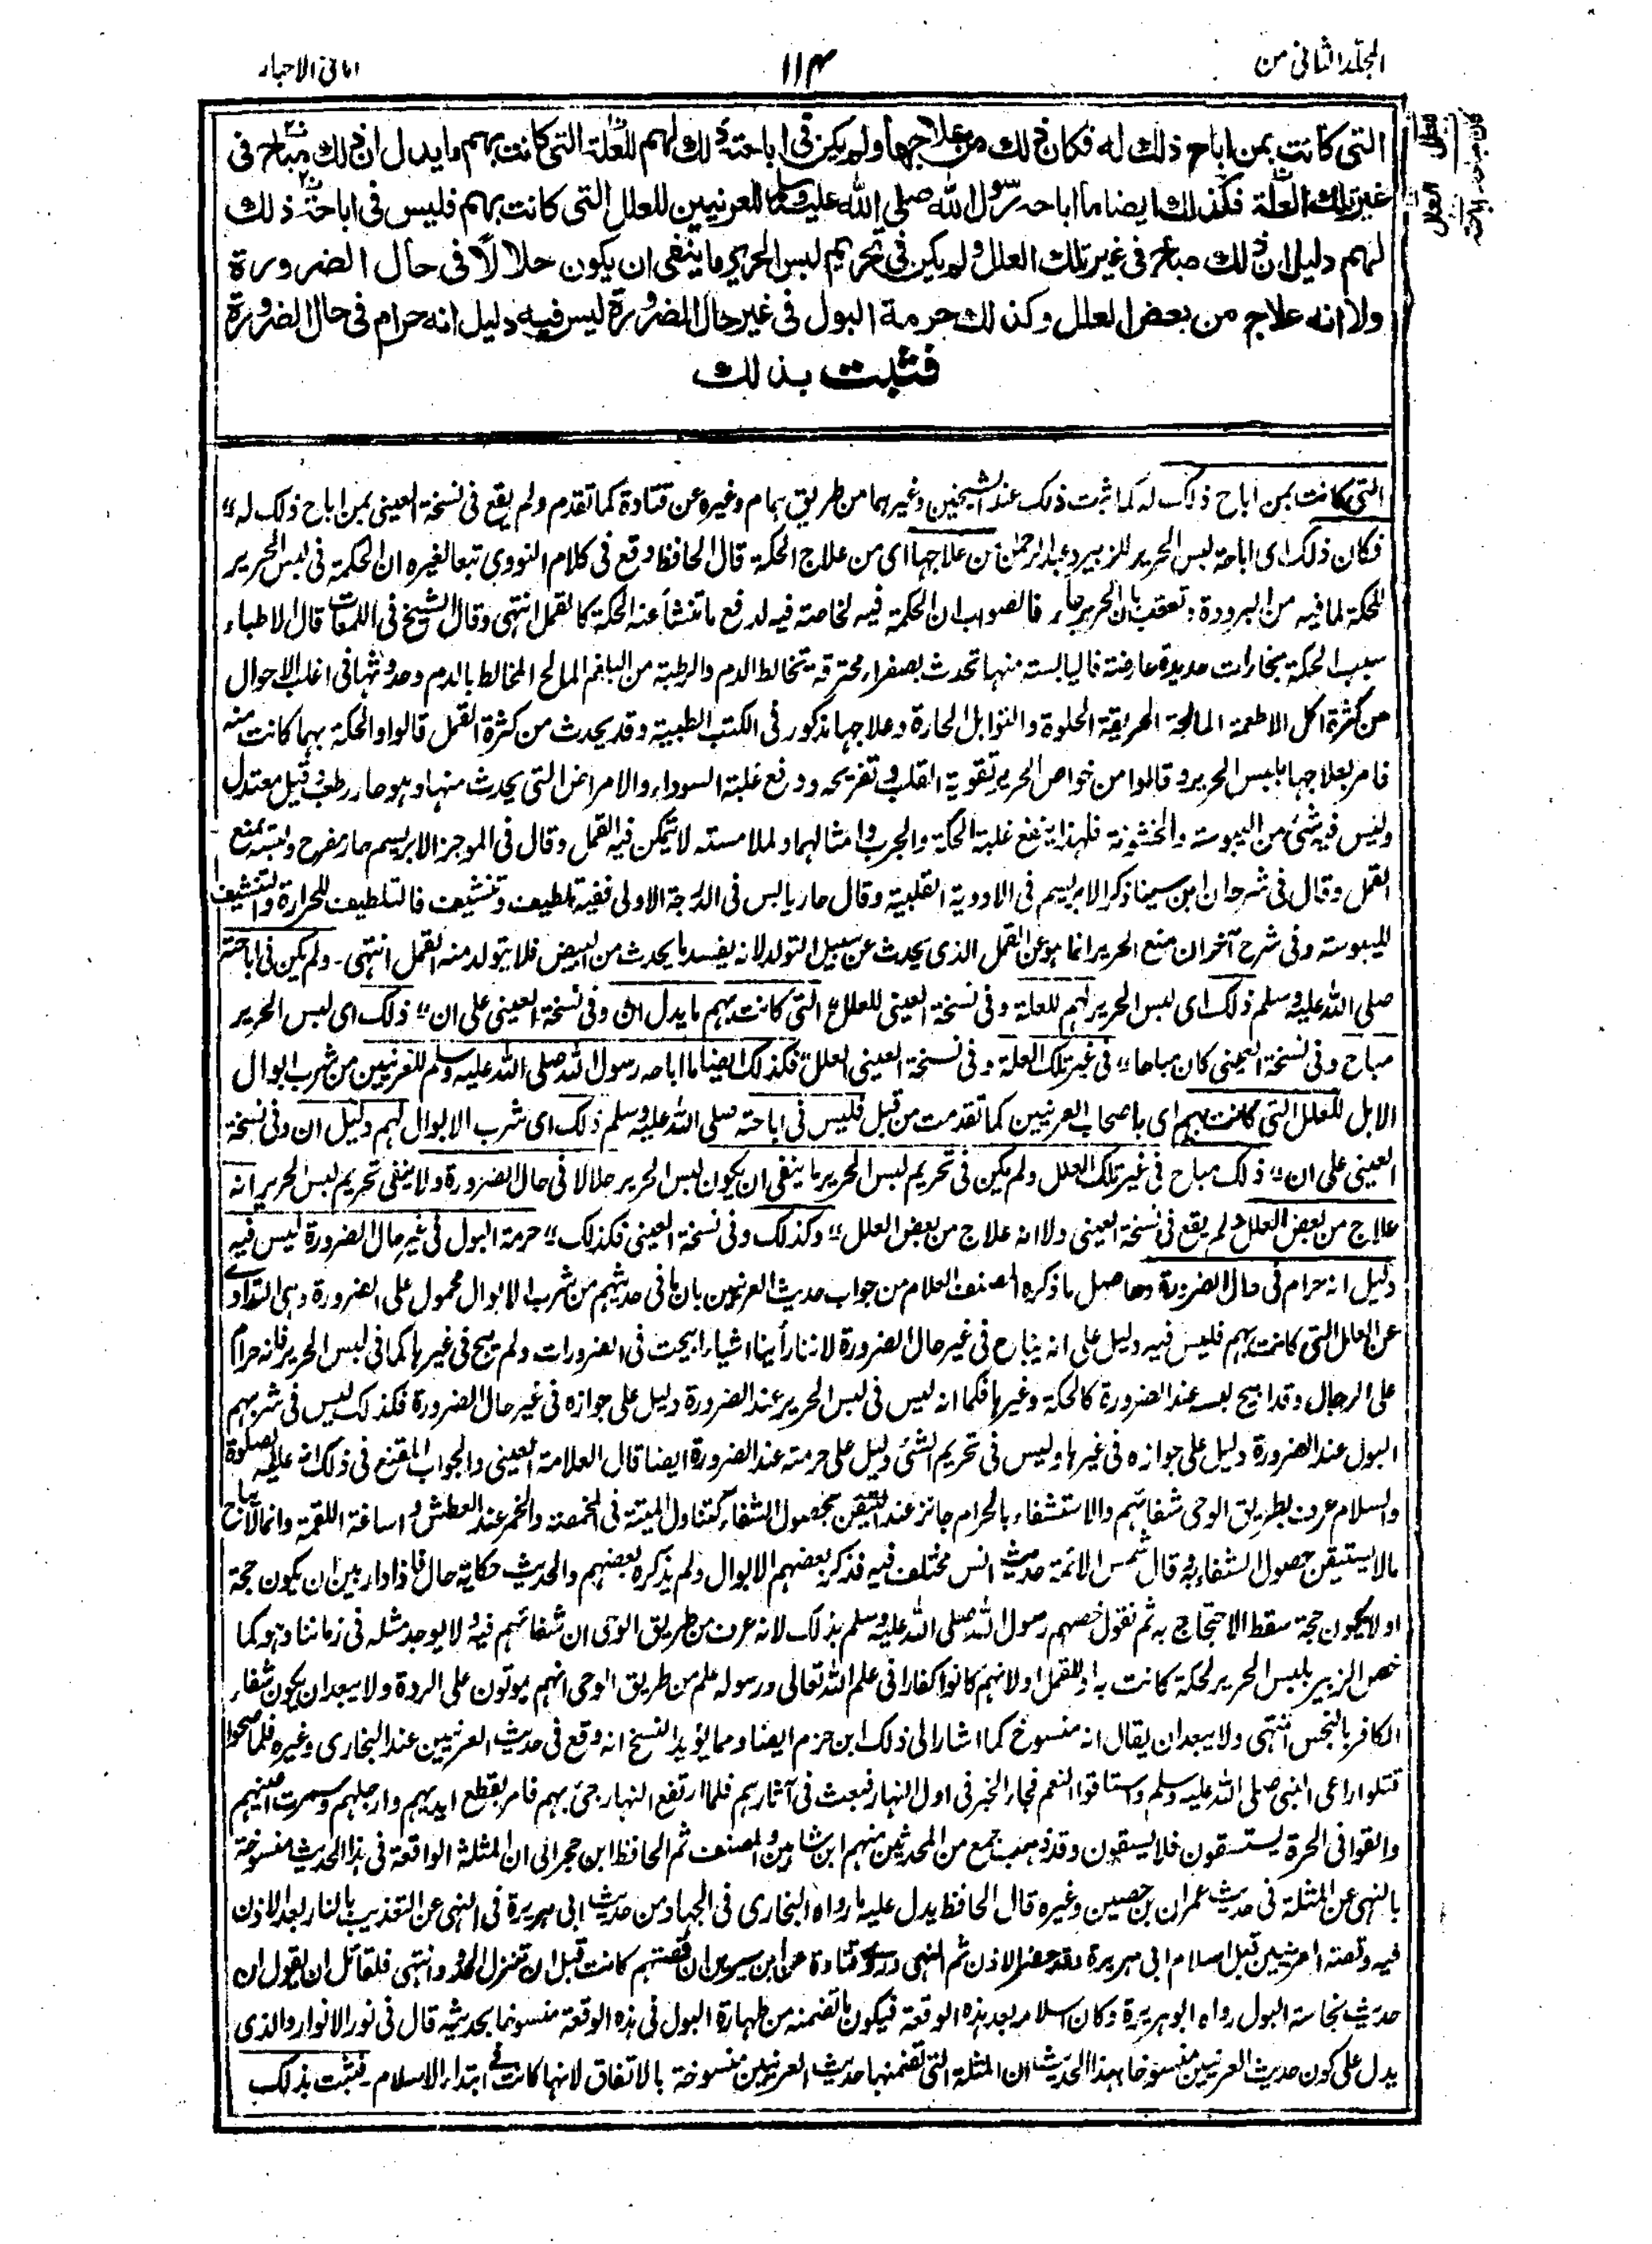 المجلد الثانی من
۱۱۴
امانی الاحبار
التی کانت بمن اباح ذلك له فکان ذلك من علاجها ولم یکن فی اباحته ذلك لهم للعلة التی کانت بهم ما یدل ان ذلك مباح فی
غیر تلك العلة فکذلك ایضا ما اباحه رسول الله صلی الله علیه وسلم للعرنیین للعلل التی کانت بهم فلیس فی اباحته ذلك
لهم دلیل ان ذلك مباح فی غیر تلك العلل ولم یکن فی تحریم لبس الحریر ما ینفی ان یکون حلالًا فی حال الضرورة
ولا انه علاج من بعض العلل وکذلك حرمة البول فی غیر حال الضرورة لیس فیه دلیل انه حرام فی حال الضرورة
فثبت بذلك
التی کانت بمن اباح ذلک له کما ثبت ذلک عند الشیخین وغیرهما من طریق همام وغیره عن قتادة کما تقدم ولم یقع فی نسخة العینی بمن اباح ذلک له‘‘
فکان ذلک ای اباحة لبس الحریر للزبیر وعبد الرحمن من علاجها ای من علاج الحکة قال الحافظ وقع فی کلام النووی تبعا لغیره ان الحکمة فی لبس الحریر
للحکة لما فیه من البرودة وتعقب بان الحریر حار فالصواب ان الحکمة فیه لخاصة فیه لدفع ما تنشأ عنه الحکة کالقمل انتهی وقال الشیخ فی اللمعات قال الاطباء
سبب الحکة بخارات حدیدة عارضة فالیابسة منها تحدث بصفراء محترقة تخالط الدم والرطبة من البلغم المالح المخالط بالدم وحدوثها فی اغلب الاحوال
من کثرة اکل الاطعمة المالحة الحریفة الحلوة والتوابل الحارة وعلاجها مذکور فی الکتب الطبیة وقد یحدث من کثرة القمل قالوا والحکة بهما کانت منه
فامر بعلاجها بلبس الحریر وقالوا من خواص الحریر تقویة القلب وتفریحه ودفع غلبة السوداء والامراض التی یحدث منها وهو حار رطب وقیل معتدل
ولیس فیه شئ من الیبوسة والخشونة فلهذا ینفع غلبة الحکة والجرب وامثالهما ولملاسته لا یتمکن فیه القمل وقال فی الموجز الابریسم حار مفرح ولبسه یمنع
القمل وقال فی شرحه ان ابن سینا ذکر الابریسم فی الادویة القلبیة وقال حار یابس فی الدرجة الاولی ففیه تلطیف وتنشیف فالتلطیف للحرارة والتنشیف
للیبوسة وفی شرح آخر ان منع الحریر انما هو عن القمل الذی یحدث عن سبیل التولد لانه یفسد ما یحدث من البیض فلا یتولد منه القمل انتهی ۔ ولم یکن فی اباحته
صلی الله علیه وسلم ذلک ای لبس الحریر لهم للعلة وفی نسخة العینی للعلل‘‘ التی کانت بهم ما یدل ان وفی نسخة العینی علی ان‘‘ ذلک ای لبس الحریر
مباح وفی نسخة العینی کان مباحا‘‘ فی غیر تلک العلة وفی نسخة العینی العلل‘‘ فکذلک ایضا ما اباحه رسول الله صلی الله علیه وسلم للعرنیین من شرب ابوال
الابل للعلل التی کانت بهم ای باصحاب العرنیین کما تقدمت من قبل فلیس فی اباحته صلی الله علیه وسلم ذلک ای شرب الابوال لهم دلیل ان وفی نسخة
العینی علی ان‘‘ ذلک مباح فی غیر تلک العلل ولم یکن فی تحریم لبس الحریر ما ینفی ان یکون لبس الحریر حلالا فی حال الضرورة ولا ینفی تحریم لبس الحریر انه
علاج من بعض العلل ولم یقع فی نسخة العینی ولا انه علاج من بعض العلل‘‘ وکذلک وفی نسخة العینی فکذلک‘‘ حرمة البول فی غیر حال الضرورة لیس فیه
دلیل انه حرام فی حال الضرورة وحاصل ما ذکره المصنف العلام من جواب حدیث العرنیین بان ما فی حدیثهم من شرب الابوال محمول علی الضرورة وهی التداوی
عن العلل التی کانت بهم فلیس فیه دلیل علی انه یباح فی غیر حال الضرورة لاننا رأینا اشیاء ابیحت فی الضرورات ولم یبح فی غیرها کما فی لبس الحریر فانه حرام
علی الرجال وقد ابیح لبسه عند الضرورة کالحکة وغیرها فکما انه لیس فی لبس الحریر عند الضرورة دلیل علی جوازه فی غیر حال الضرورة فکذلک لیس فی شربهم
البول عند الضرورة دلیل علی جوازه فی غیرها ولیس فی تحریم الشئ دلیل علی حرمته عند الضرورة ایضا قال العلامة العینی والجواب المقنع فی ذلک انه علیه الصلوة
والسلام عرف بطریق الوحی شفائهم والاستشفاء بالحرام جائز عند التیقن بحصول الشفاء کتناول المیتة فی المخمصة والخمر عند العطش واساغة اللقمة وانما لا یباح
ما لا یستیقن حصول الشفاء به وقال شمس الائمة حدیث انس مختلف فیه فذکر بعضهم الابوال ولم یذکره بعضهم والحدیث حکایة حال فاذا دار بین ان یکون حجة
او لا یکون حجة سقط الاحتجاج به ثم نقول خصهم رسول الله صلی الله علیه وسلم بذلک لانه عرف من طریق الوحی ان شفائهم فیه ولا یوجد مثله فی زماننا وهو کما
خص الزبیر بلبس الحریر لحکة کانت به او للقمل او لانهم کانوا کفارا فی علم الله تعالی ورسوله علم من طریق الوحی انهم یموتون علی الردة ولا یبعد ان یکون شفاء
الکافر بالنجس انتهی ولا یبعد ان یقال انه منسوخ کما اشار الی ذلک ابن حزم ایضا ومما یؤید النسخ انه وقع فی حدیث العرنیین عند البخاری وغیره فلما صحوا
قتلوا راعی النبی صلی الله علیه وسلم واستاقوا النعم فجاء الخبر فی اول النهار فبعث فی آثارهم فلما ارتفع النهار جئ بهم فامر بقطع ایدیهم وارجلهم وسمرت اعینهم
والقوا فی الحرة یستسقون فلا یسقون وقد ذهب جمع من المحدثین منهم ابن شاهین والمصنف ثم الحافظ ابن حجر الی ان المثلة الواقعة فی هذا الحدیث منسوخة
بالنهی عن المثلة فی حدیث عمران بن حصین وغیره قال الحافظ یدل علیه ما رواه البخاری فی الجهاد من حدیث ابی هریرة فی النهی عن التعذیب بالنار بعد الاذن
فیه وقصة العرنیین قبل اسلام ابی هریرة وقد حضر الاذن ثم النهی وروی قتادة عن ابن سیرین ان قصتهم کانت قبل ان تنزل الحدود انتهی فلقائل ان یقول ان
حدیث نجاسة البول رواه ابو هریرة وکان اسلامه بعد هذه الوقعة فیکون ما تضمنه من طهارة البول فی هذه الوقعة منسوخا بحدیثه قال فی نور الانوار والذی
یدل علی کون حدیث العرنیین منسوخا بهذا الحدیث ان المثلة التی تضمنها حدیث العرنیین منسوخة بالاتفاق لانها کانت فی ابتداء الاسلام ۔ فثبت بذلک